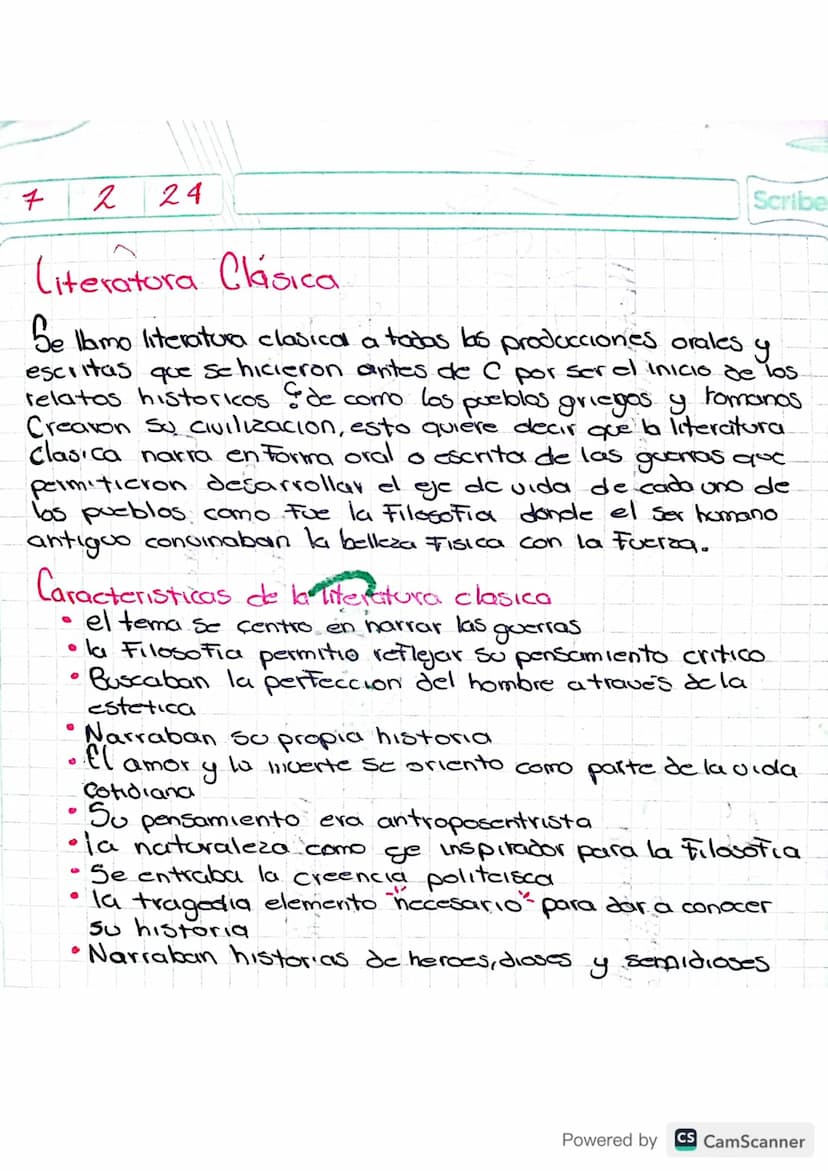 7 2 24
Scribe
Literatura Clásica
Se llamo literatura clasica a todas las producciones orales y
escritas que se hicieron antes de C por ser el inicio de los
relatos historicos de como los pueblos griegos y romanos
Crearon su civilizacion, esto quiere decir que la literatura
clasica narra en forma oral o escrita de las guerras que
permitieron desarrollar el eje de vida de cada uno de
los pueblos como fue la Filosofia donde el ser humano
antiguo convinaban la belleza Fisica con la Fuerza.
Caracteristicas de la literatura clasica
• el tema se centro en narrar las guerras
• la Filosofia permitio reflejar su pensamiento critico
• Buscaban la perfeccion del hombre a través de la
estetica
• Narraban su propia historia
• El amor y la muerte se oriento como parte de la vida
cotidiana
• Su pensamiento era antroposentrista
• la naturaleza como eje inspirador para la Filosofia
• Se entraba la creencia politeisca
• la tragedia elemento "necesario" para dar a conocer
su historia
• Narraban historias de heroes, dioses y semidioses
Powered by CS CamScanner